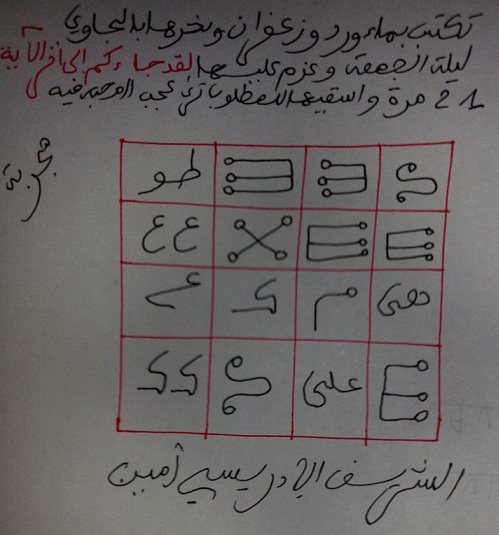 تكتب بماء ورد وزعفران وبخرها بالجاوي
ليلة الجمعة وعزم عليها لقد جاءكم الى اخر الآية
21 مرة واسقيها للمطلوب ترى عجب المحبة فيه
مجربة
طو
ع ع
هى
م
ك
على
ك ك
الشريف الإدريسي أمين